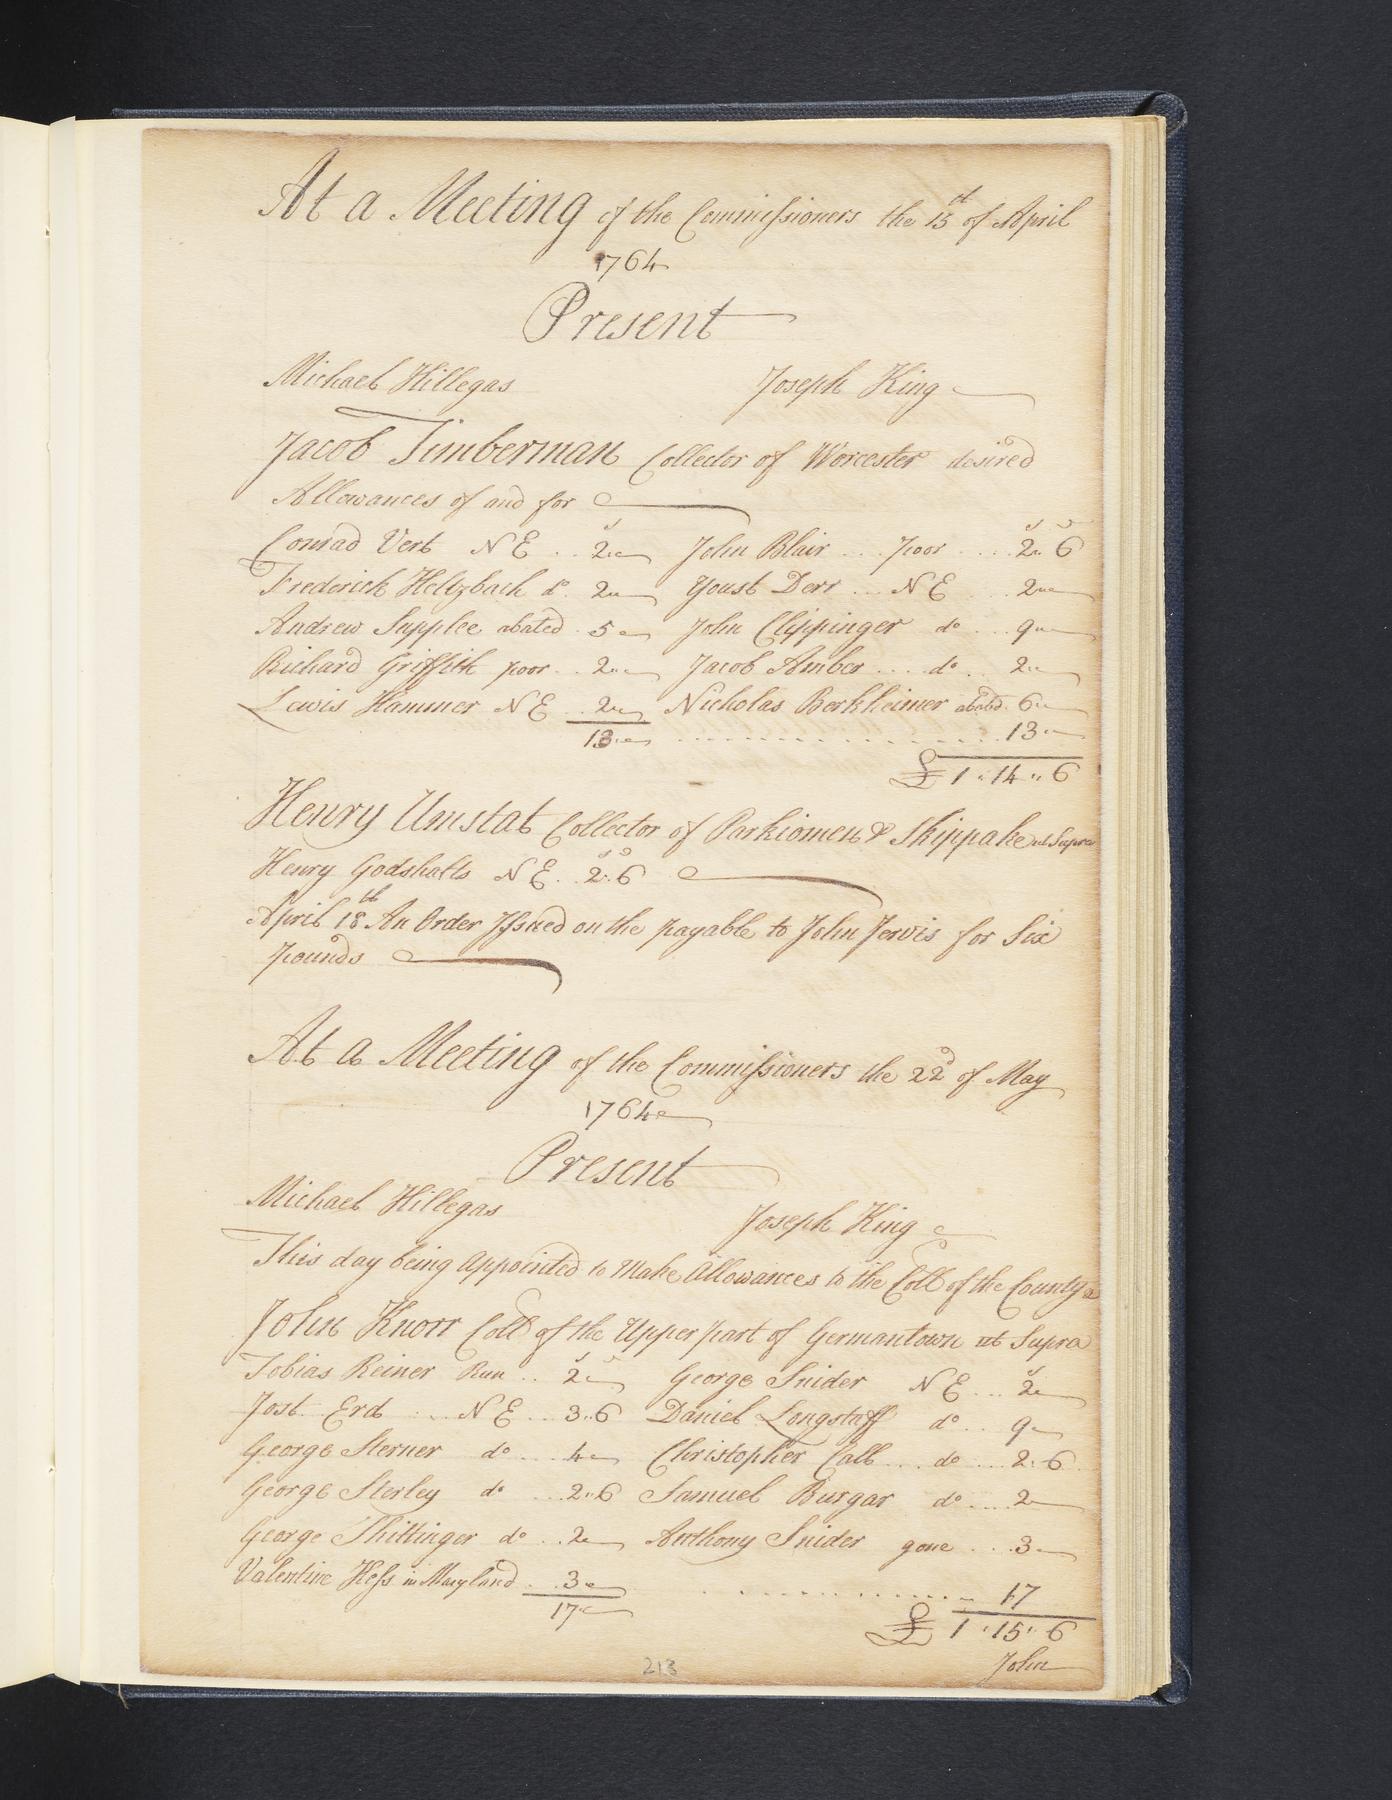 At a Meeting of the Commissioners the 13th of April
1764
Present
Michael Hillegas Joseph King
Jacob Timberman Collector of Worcester desired
Allowances of and for
Conrad Verb NE .. 2 John Blair .... poor .... 2 6
Frederick Heltzbach do. 2 Youst Derr ... NE ... 2
Andrew Supplee abated . 5 John Clippinger do ... 9
Richard Griffith poor .. 2 Jacob Amber .... do .. 2
Lewis Hammer NE .. 2 Nicholas Berkheimer abated 6
13 13
£ 1 " 14 " 6
Henry Umstat Collector of Parkiomen & Skippake ut Supra
Henry Godshalls NE .. 2 " 6
April 18th An Order Issued on the payable to John Jervis for Six
pounds
At a Meeting of the Commissioners the 22d of May
1764
Present
Michael Hillegas Joseph King
This day being appointed to Make Allowances to the Colls of the County
John Knorr Coll of the Upper part of Germantown ut Supra
Tobias Reiner Run .. 2 George Snider NE ... 2
Jost Erd ... NE ... 3 " 6 Daniel Longstaff do .. 9
George Sterner do .... 4 Christopher Calb ... do .... 2 " 6
George Sterley do ... 2 " 6 Samuel Burgar do .... 2
George Thillinger do .. 2 Anthony Snider gone ... 3
Valentine Hess in Maryland .. 3
17 17
£ 1 " 15 " 6
John
213